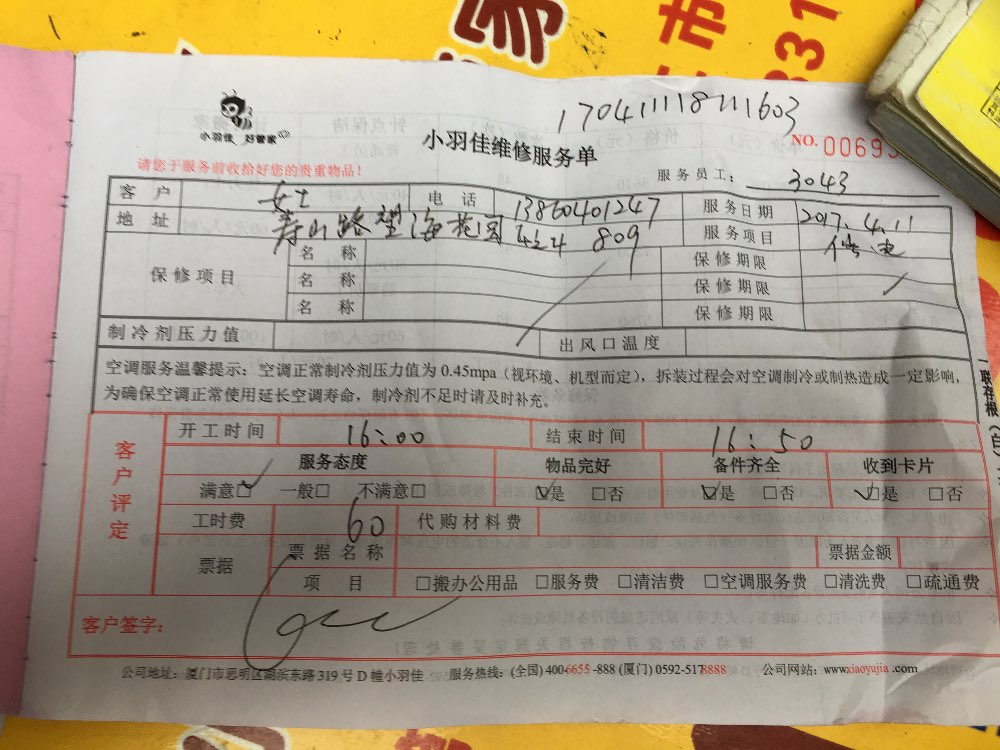 家
市
831
170411118111603
小羽佳 好管家
小羽佳维修服务单
NO. 00693
请您于服务前收拾好您的贵重物品！
服务员工： 3043
客户 女士 电话 13860401247 服务日期 2017.4.11
地址 寿山路望海花园424 809 服务项目
保修项目 名称 保修期限
名称 保修期限
名称 保修期限
制冷剂压力值 出风口温度
空调服务温馨提示：空调正常制冷剂压力值为 0.45mpa（视环境、机型而定），拆装过程会对空调制冷或制热造成一定影响，
为确保空调正常使用延长空调寿命，制冷剂不足时请及时补充。
客户评定
开工时间 16:00 结束时间 16:50
服务态度 物品完好 备件齐全 收到卡片
满意□ 一般□ 不满意□ □是 □否 □是 □否 □是 □否
工时费 60 代购材料费
票据 票据名称 票据金额
项目 □搬办公用品 □服务费 □清洁费 □空调服务费 □清洗费 □疏通费
客户签字：
公司地址：厦门市思明区湖滨东路 319 号 D 幢小羽佳 服务热线：(全国) 400-6655-888 (厦门) 0592-5178888 公司网站：www.xiaoyujia.com
联存根